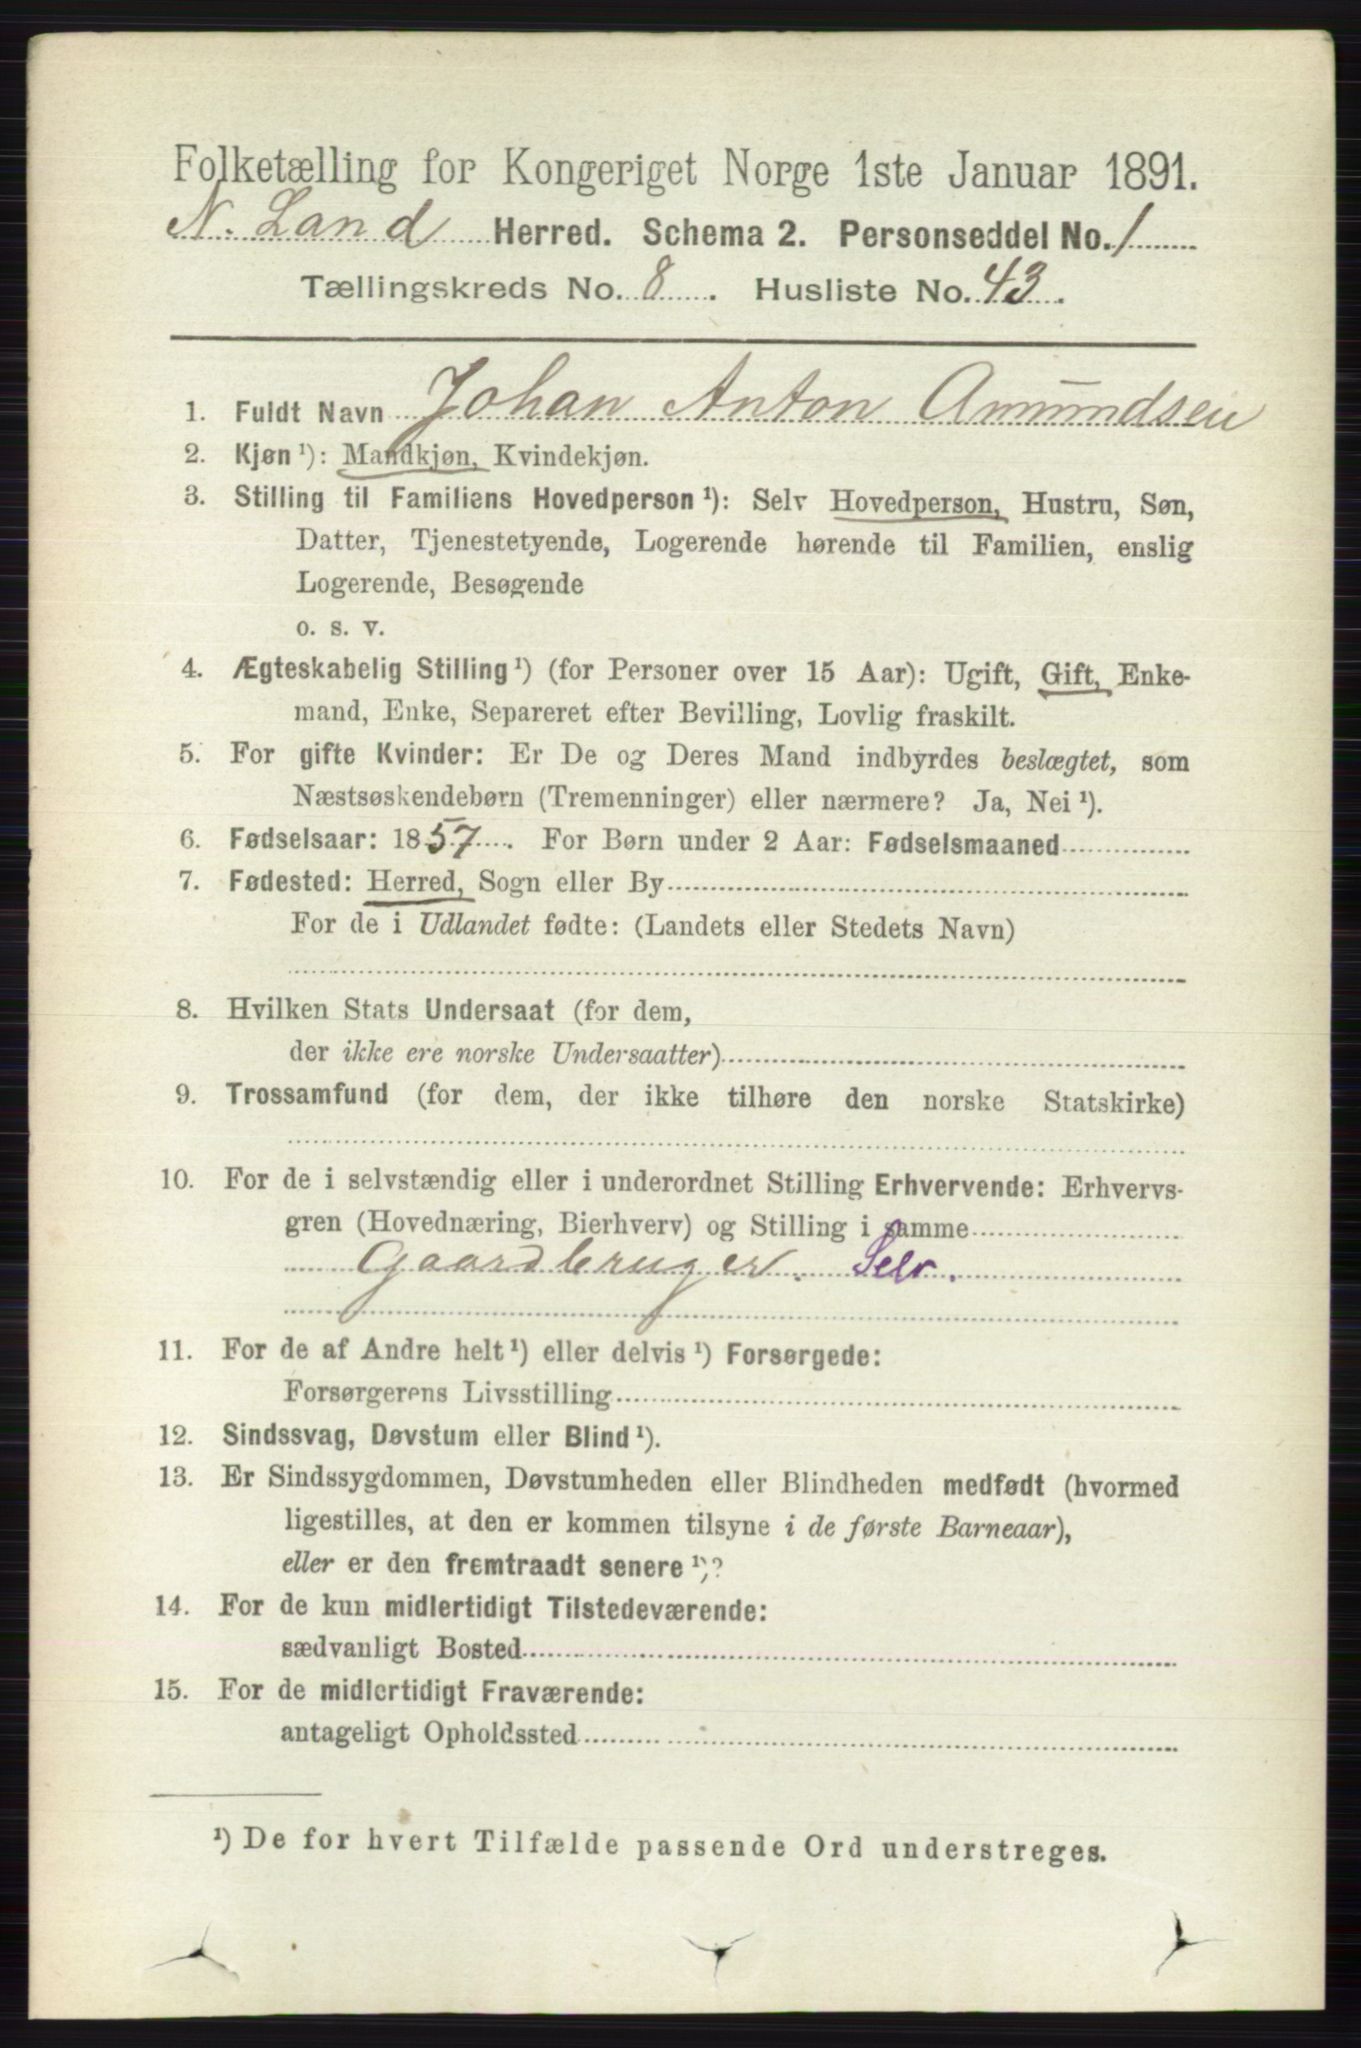 Folketælling for Kongeriget Norge 1ste Januar 1891.
N. Land Herred. Schema 2. Personseddel No. 1
Tællingskreds No. 8. Husliste No. 43.
1. Fuldt Navn Johan Anton Amundsen
2. Kjøn ¹): Mandkjøn, Kvindekjøn.
3. Stilling til Familiens Hovedperson ¹): Selv Hovedperson, Hustru, Søn,
Datter, Tjenestetyende, Logerende hørende til Familien, enslig
Logerende, Besøgende
o. s. v.
4. Ægteskabelig Stilling ¹) (for Personer over 15 Aar): Ugift, Gift, Enke-
mand, Enke, Separeret efter Bevilling, Lovlig fraskilt.
5. For gifte Kvinder: Er De og Deres Mand indbyrdes beslægtet, som
Næstsøskendebørn (Tremenninger) eller nærmere? Ja, Nei ¹).
6. Fødselsaar: 1857. For Børn under 2 Aar: Fødselsmaaned
7. Fødested: Herred, Sogn eller By
For de i Udlandet fødte: (Landets eller Stedets Navn)
8. Hvilken Stats Undersaat (for dem,
der ikke ere norske Undersaatter)
9. Trossamfund (for dem, der ikke tilhøre den norske Statskirke)
10. For de i selvstændig eller i underordnet Stilling Erhvervende: Erhvervs-
gren (Hovednæring, Bierhverv) og Stilling i samme
Gaardbruger. Selv.
11. For de af Andre helt ¹) eller delvis ¹) Forsørgede:
Forsørgerens Livsstilling
12. Sindssvag, Døvstum eller Blind ¹).
13. Er Sindssygdommen, Døvstumheden eller Blindheden medfødt (hvormed
ligestilles, at den er kommen tilsyne i de første Barneaar),
eller er den fremtraadt senere ¹)?
14. For de kun midlertidigt Tilstedeværende:
sædvanligt Bosted
15. For de midlertidigt Fraværende:
antageligt Opholdssted
¹) De for hvert Tilfælde passende Ord understreges.